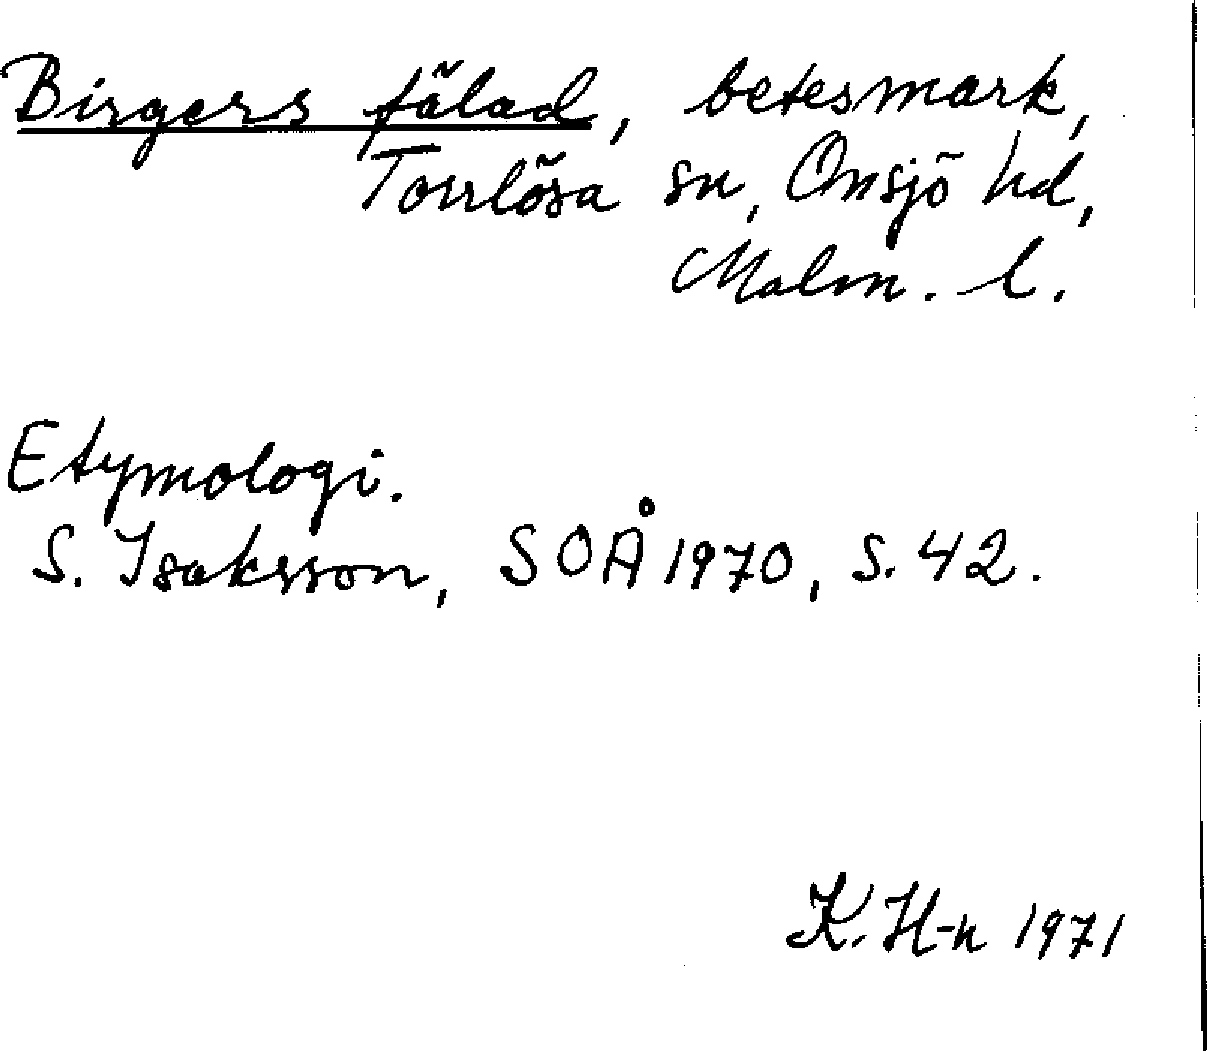 Birgers fälad, betesmark,
Torrlösa sn, Onsjö hd,
Malm. l.
Etymologi.
S. Isaksson, SOÅ 1970, s. 42.
K. H-n 1971